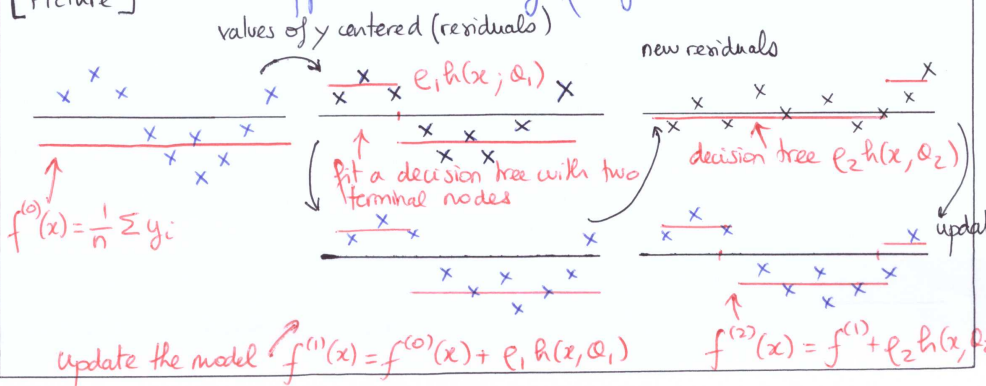 [Picture]
values of y centered (residuals)
new residuals
ρ₁h(x; Θ₁)
fit a decision tree with two
terminal nodes
decision tree ρ₂h(x, Θ₂)
f⁽⁰⁾(x) = 1/n Σ yᵢ
updat
update the model : f⁽¹⁾(x) = f⁽⁰⁾(x) + ρ₁ h(x, Θ₁)
f⁽²⁾(x) = f⁽¹⁾ + ρ₂ h(x, Θ₂